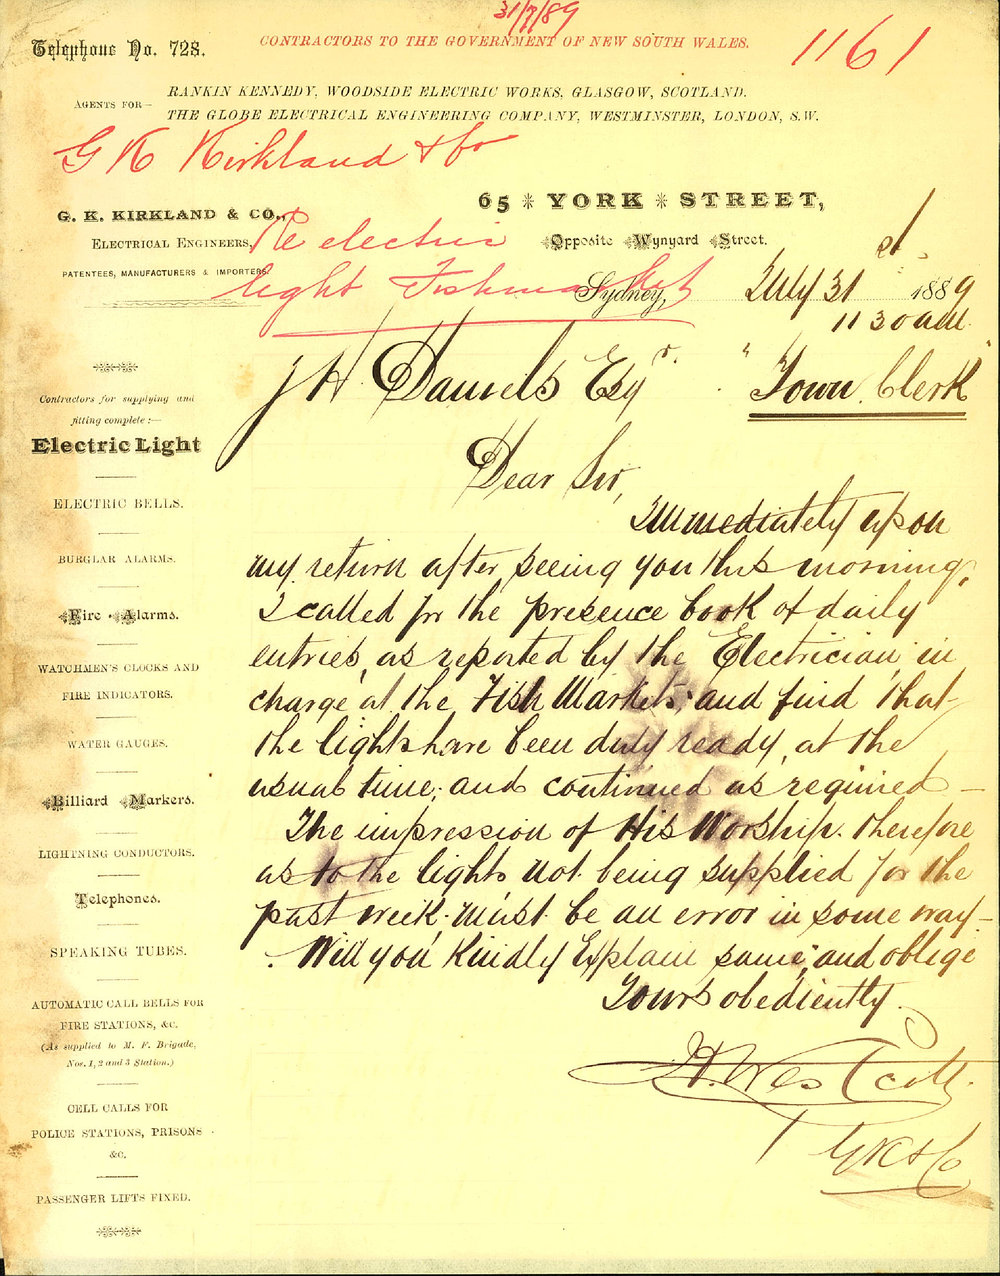 31/7/89
Telephone No. 728.
CONTRACTORS TO THE GOVERNMENT OF NEW SOUTH WALES.
1161
AGENTS FOR—
RANKIN KENNEDY, WOODSIDE ELECTRIC WORKS, GLASGOW, SCOTLAND.
THE GLOBE ELECTRICAL ENGINEERING COMPANY, WESTMINSTER, LONDON, S.W.
G K Kirkland & Co
65 * YORK * STREET,
G. K. KIRKLAND & CO.,
ELECTRICAL ENGINEERS,
Opposite Wynyard Street.
PATENTEES, MANUFACTURERS & IMPORTERS.
Re electric
light Fishmarket
Sydney, July 31 1889
11 30 am
J H Daniels Esqr. "Town Clerk"
Dear Sir,
Immediately upon
my return after seeing you this morning,
I called for the presence book of daily
entries, as reported by the Electrician in
charge at the Fish Markets, and find that
the lights have been duly ready, at the
usual time, and continued as required —
The impression of His Worship. therefore
as to the lights not being supplied for the
past week, must be an error in some way —
Will you Kindly Explain same, and oblige
Yours obediently.
H. Westcott.
GK & Co
Contractors for supplying and
fitting complete:—
Electric Light
ELECTRIC BELLS.
BURGLAR ALARMS.
Fire Alarms.
WATCHMEN'S CLOCKS AND
FIRE INDICATORS.
WATER GAUGES.
Billiard Markers.
LIGHTNING CONDUCTORS.
Telephones.
SPEAKING TUBES.
AUTOMATIC CALL BELLS FOR
FIRE STATIONS, &C.
(As supplied to M. F. Brigade,
Nos. 1, 2 and 3 Station.)
CELL CALLS FOR
POLICE STATIONS, PRISONS
&C.
PASSENGER LIFTS FIXED.